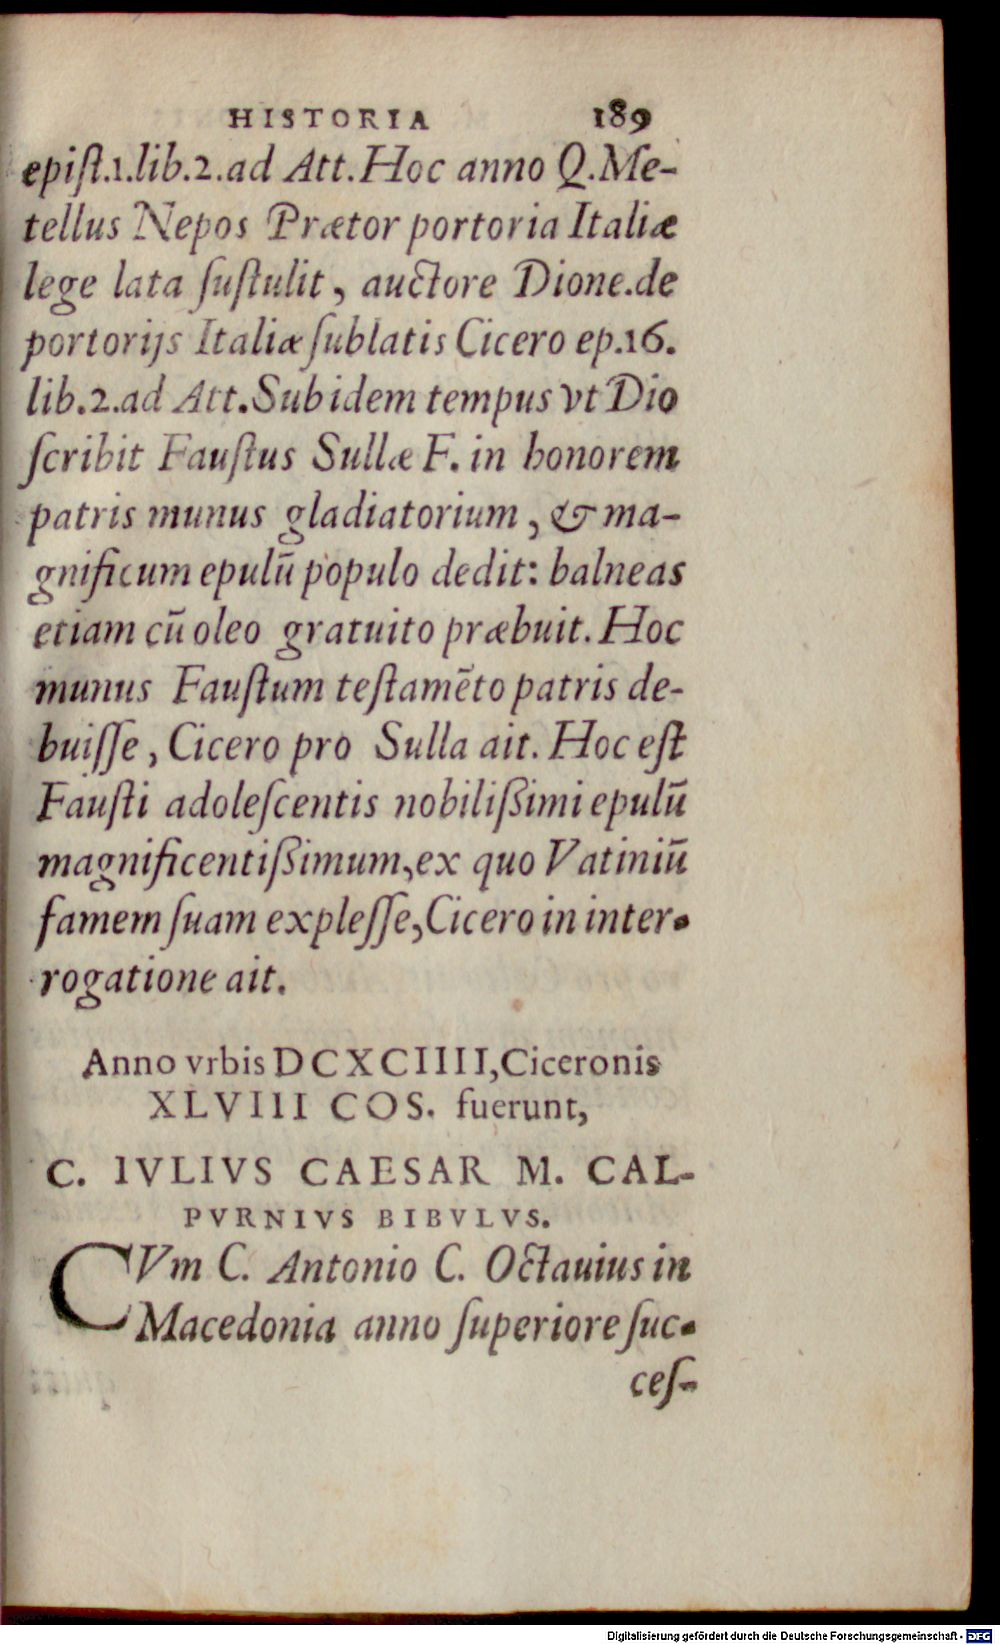 HISTORIA 189
epiſt.1.lib.2.ad Att.Hoc anno Q.Me-
tellus Nepos Prætor portoria Italiæ
lege lata ſuſtulit, auctore Dione.de
portorijs Italiæ ſublatis Cicero ep.16.
lib.2.ad Att.Sub idem tempus vt Dio
ſcribit Fauſtus Sullæ F. in honorem
patris munus gladiatorium, & ma-
gnificum epulū populo dedit: balneas
etiam cū oleo gratuito præbuit. Hoc
munus Fauſtum teſtamēto patris de-
buiſſe, Cicero pro Sulla ait. Hoc eſt
Fauſti adoleſcentis nobilißimi epulū
magnificentißimum,ex quo Vatiniū
famem ſuam expleſſe,Cicero in inter-
rogatione ait.
Anno vrbis DCXCIIII,Ciceronis
XLVIII COS. fuerunt,
C. IVLIVS CAESAR M. CAL-
PVRNIVS BIBVLVS.
CVm C. Antonio C. Octauius in
Macedonia anno ſuperiore ſuc-
ceſ-
Digitalisierung gefördert durch die Deutsche Forschungsgemeinschaft - DFG